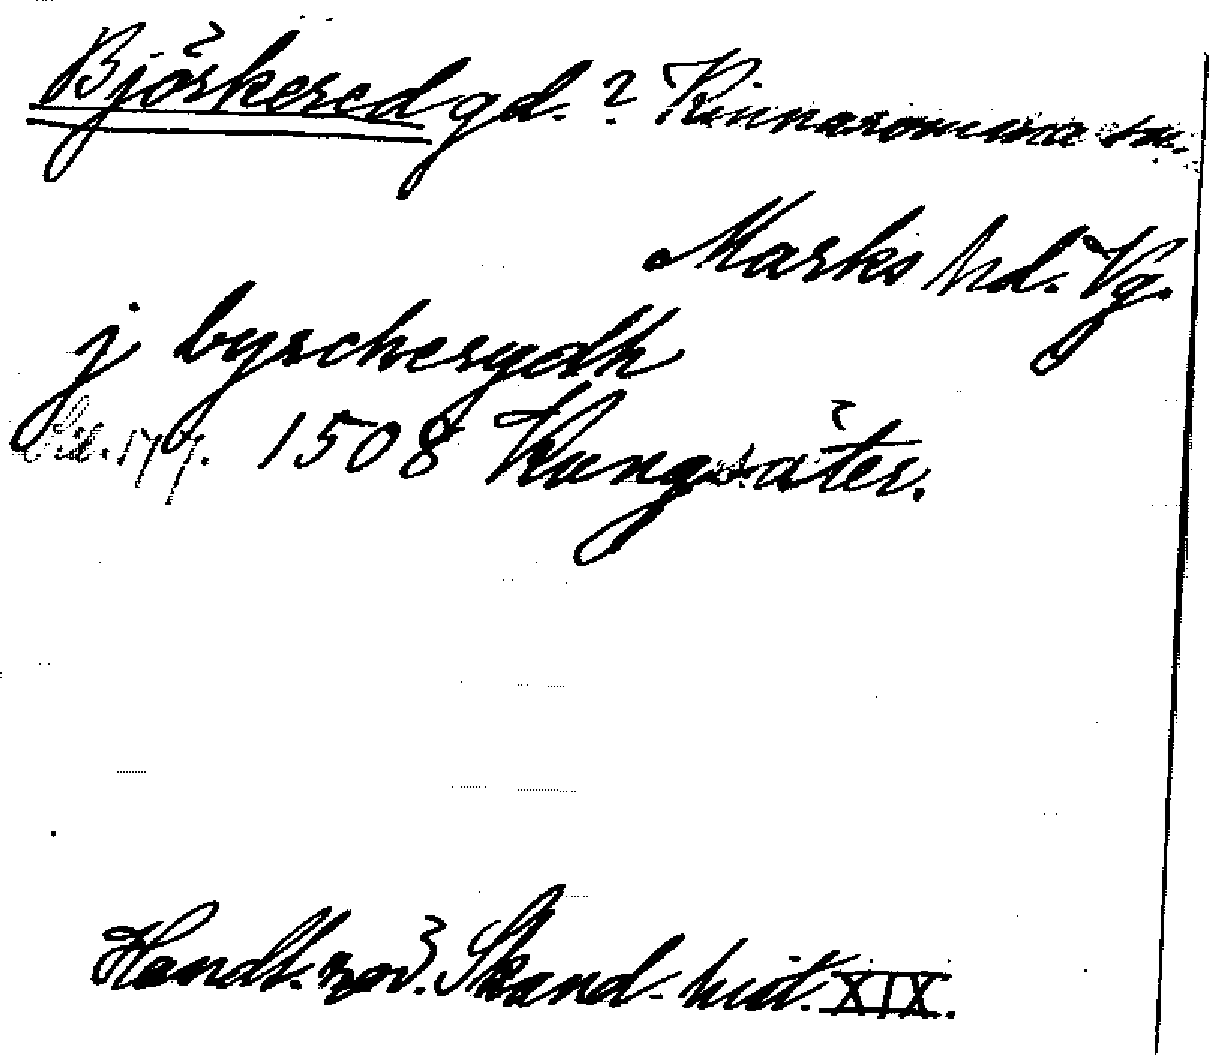 Björkered gd. ? Kinnaromma sn.
Marks hd. Vg.
j byrckerydh
Sid. 177. 1508 Kungsäter.
Handl. rör. Skand. hist. XIX.